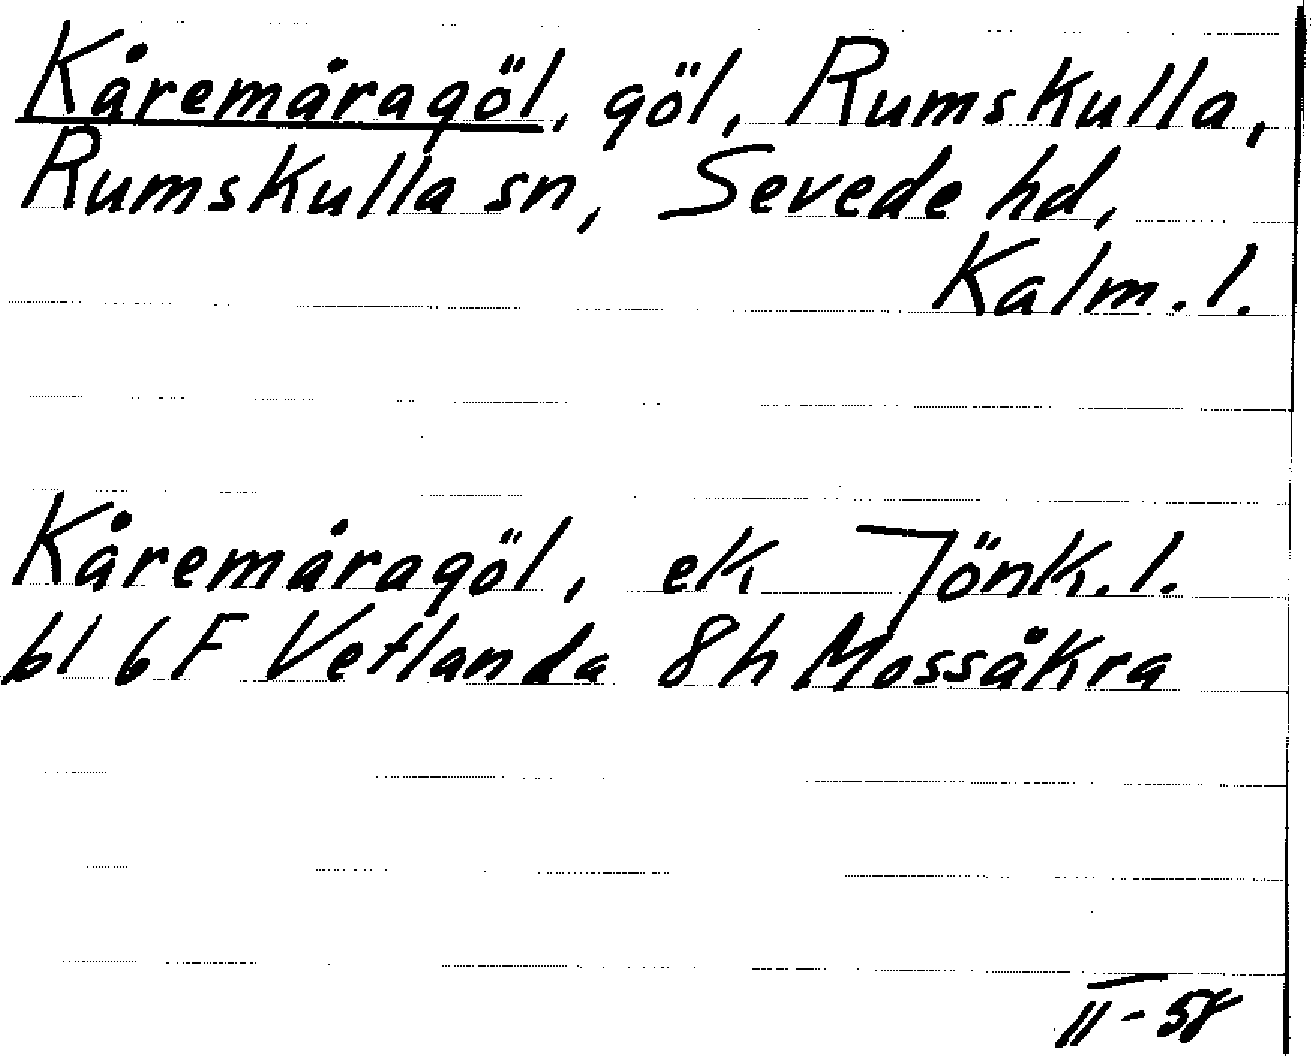 Kåremåragöl, göl, Rumskulla,
Rumskulla sn, Sevede hd,
Kalm. l.
Kåremåragöl, ek Jönk. l.
bl 6 F Vetlanda 8h Mossåkra
II-58